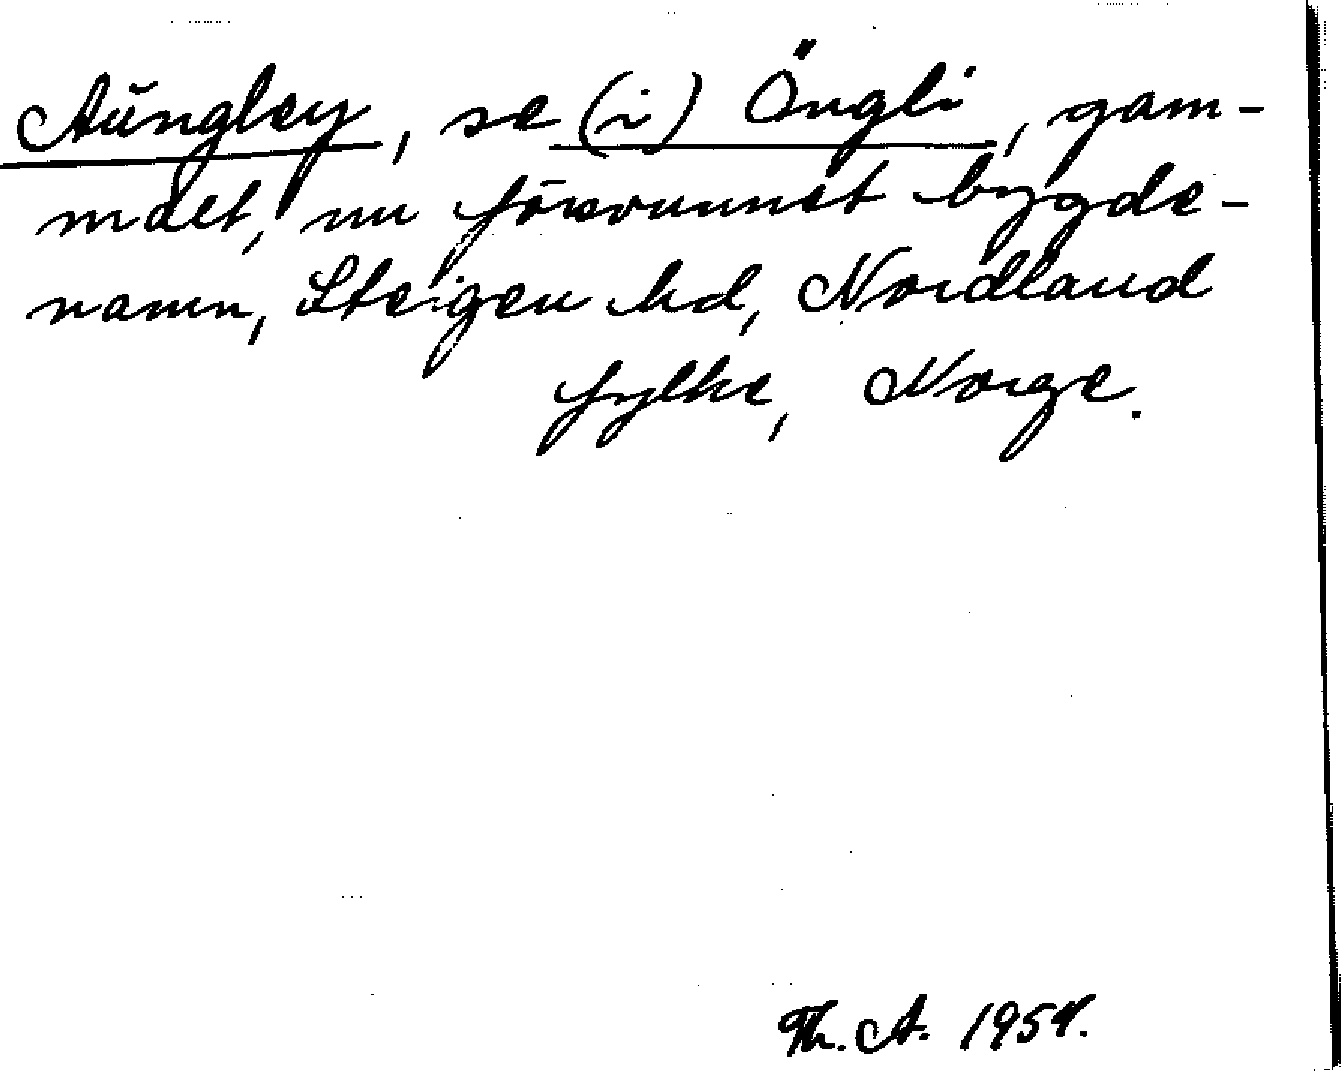 Aŭngley, se (i) Öngli, gam-
malt, nu försvunnet bygde-
namn, Steigen hd, Nordland
fylke, Norge.
Th. A. 1954.